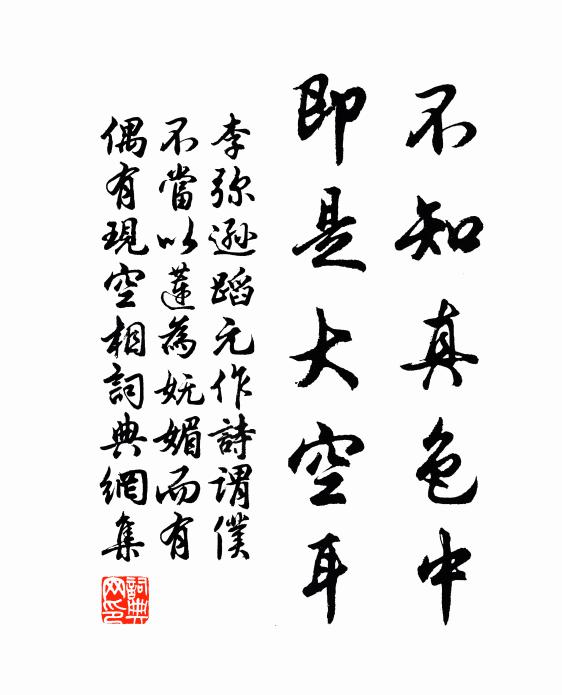 不知真色中
即是大空耳
李弥遜蹈元作詩謂僕
不當以蓮為妩媚而有
偶有現空相詞典網集
詞典
网印